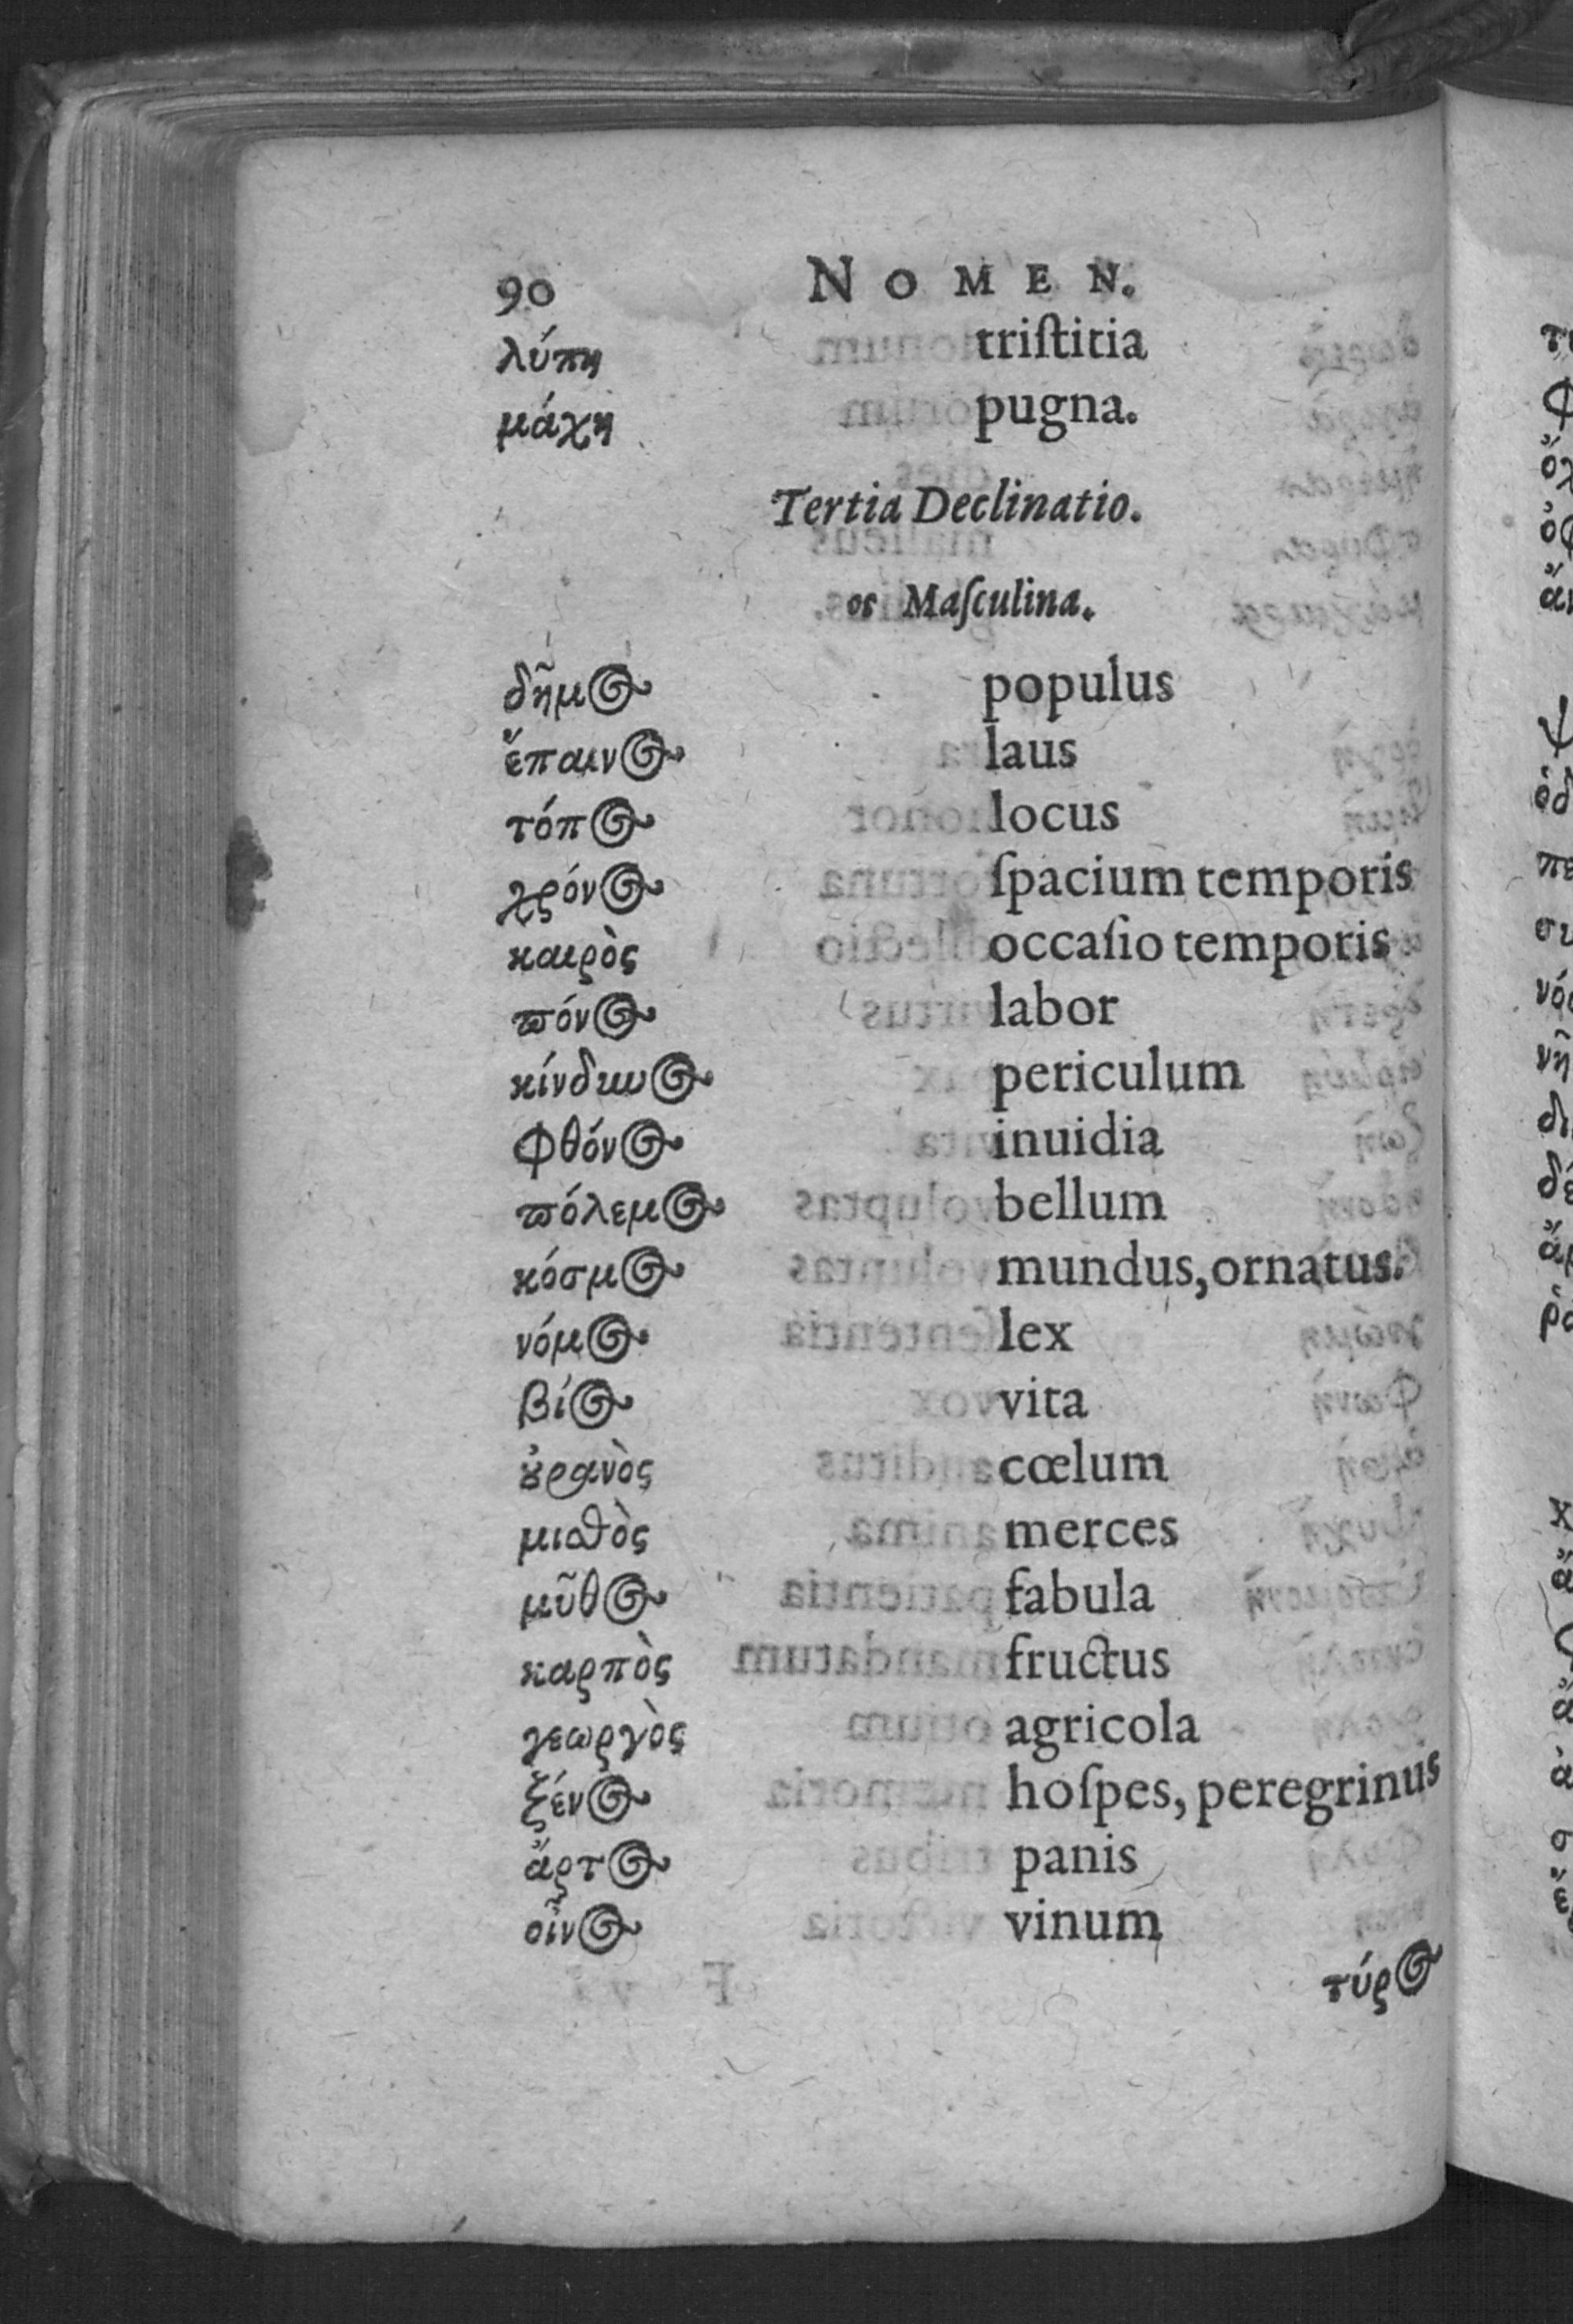 90 NOMEN.
λύπη triſtitia
μάχη pugna.
Tertia Declinatio.
ος Maſculina.
δῆμος populus
ἔπαινος laus
τόπος locus
χρόνος ſpacium temporis
καιρὸς occaſio temporis
πόνος labor
κίνδυνος periculum
φθόνος inuidia
πόλεμος bellum
κόσμος mundus, ornatus.
νόμος lex
βίος vita
ȣ̓ρανὸς cœlum
μισθὸς merces
μῦθος fabula
καρπὸς fructus
γεωργὸς agricola
ξένος hoſpes, peregrinus
ἄρτος panis
οἶνος vinum
τύρος